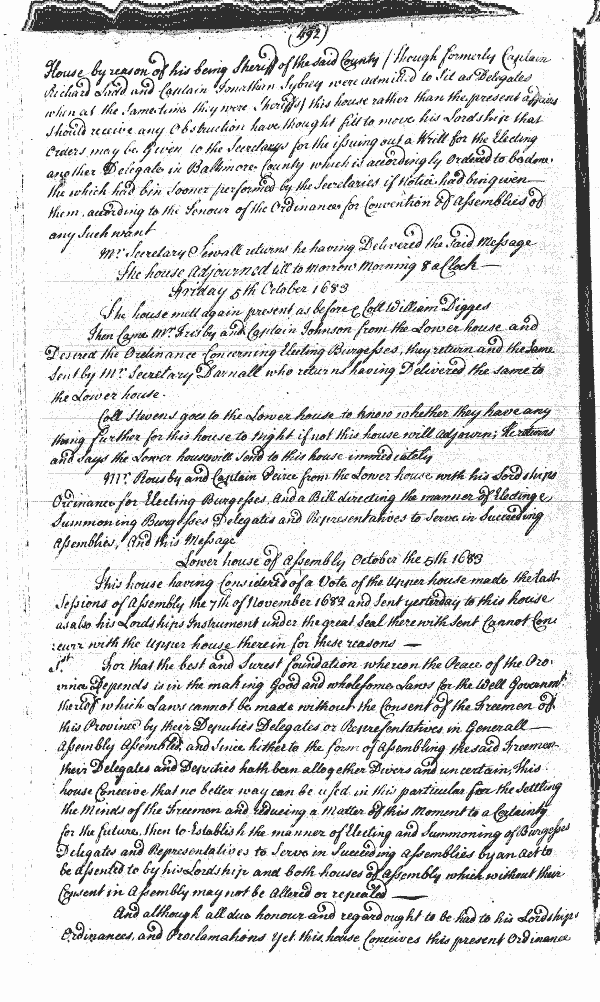 (492)
House by reason of his being Sheriff of the said County / though formerly Captain
Richard Ladd and Captain Jonathan Sybrey were admitted to sit as Delegates
when at the same time they were Sheriffs / this house rather than the present affairs
should receive any Obstruction have thought fitt to move his Lordship that
Orders may be Given to the Secretarys for the issuing out a Writt for the Electing
another Delegate in Baltimore County which is accordingly Ordered to be done
the which had bin sooner performed by the Secretaries if Notice had bin given
them, according to the Tenour of the Ordinance for Convention of Assemblies of
any such want
Mr. Secretary Sewall returns he having Delivered the said Message
The house Adjourned till to morrow Morning 8 a Clock
Friday 5th October 1683
The house mett again present as before & Coll William Digges
Then Came Mr. Frisby and Captain Johnson from the Lower house and
Desired the Ordinance Concerning Electing Burgesses, they return and the same
sent by Mr. Secretary Darnall who returns having Delivered the same to
the Lower house.
Coll Stevens goes to the Lower house to know whether they have any
thing further for this house to Night if not this house will adjourn; He returns
and says the Lower house will send to this house immediately
Mr. Rousby and Captain Peirce from the Lower house with his Lordships
Ordinance for Electing Burgesses, And a Bill directing the manner of Electing &
Summoning Burgesses Delegates and Representatives to Serve in Succeeding
Assemblies, And this Message
Lower house of Assembly October the 5th 1683
This house having Considered of a Vote of the Upper house made the last
Sessions of Assembly the 7th of November 1682 and Sent yesterday to this house
as also his Lordships Instrument under the great Seal therewith sent Cannot Con
curr with the Upper house therein for these reasons —
1st. For that the best and Surest foundation whereon the Peace of the Pro
vince Depends is in the making Good and wholesome Laws for the Well Governmt.
thereof which Laws cannot be made without the Consent of the Freemen of
this Province by their Deputies Delegates or Representatives in Generall
Assembly Assembled, and Since hitherto the form of Assembling the said Freemen
their Delegates and Deputies hath been altogether Divers and uncertain, This
house Conceive that no better way can be used in this particular for the Settling
the Minds of the Freemen and reducing a Matter of this Moment to a Certainty
for the future, then to Establish the manner of Electing and Summoning of Burgesses
Delegates and Representatives to Serve in Succeeding Assemblies by an Act to
be assented to by his Lordship and both houses of Assembly which without their
Consent in Assembly may not be Altered or repealed —
And although all due honour and regard ought to be had to his Lordships
Ordinances, and Proclamations Yet this house Conceives this present Ordinance